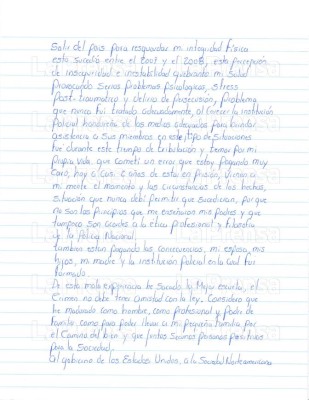 Salir del pais para resguardar mi integridad física
esto sucedió entre el 2007 y el 2008, esta percepción
de inseguridad e inestabilidad quebrantó mi Salud
Provocando serios problemas psicologicos, stress
Post-traumatico y delirio de Persecusión, problema
que nunca fui tratado adecuadamente, al carecer la institución
policial hondureña de los medios adecuados para brindar
asistencia a sus miembros en este tipo de situaciones
fue durante este tiempo de tribulación y temor por mi
Propia vida, que cometí un error que estoy pagando muy
Caro, hoy a casi 6 años de estar en prisión, vienen a
mi mente el momento y las circunstancias de los hechos,
situación que nunca debí permitir que sucedieran, por que
no son los principios que me enseñaron mis padres y que
tampoco son acordes a la etica profesional y filosofia
de la Policia Nacional.
tambien estan pagando las consecuencias, mi esposa, mis
hijos, mi madre y la institución policial en la cual fui
formado.
De esta mala experiencia he sacado la mejor escuela, el
Crimen no debe tener amistad con la ley. Considero que
he madurado como hombre, como profesional y Padre de
familia como para poder llevar a mi pequeña familia por
el Camino del bien y que juntos seamos personas positivas
para la Sociedad.
al gobierno de los Estados Unidos, a la Sociedad Norteamericana